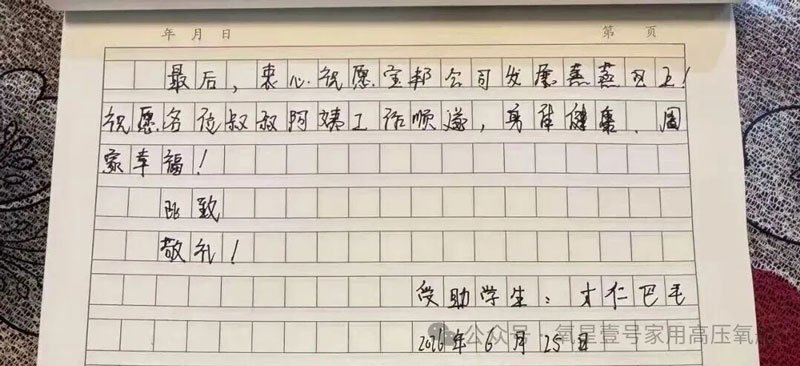 年 月 日 第 页
最后，衷心祝愿宝邦公司发展蒸蒸日上！
祝愿各位叔叔阿姨工作顺遂，身体健康、阖
家幸福！
此致
敬礼！
受助学生：才仁巴毛
公众号·氧星壹号家用高压氧
2026年6月25日